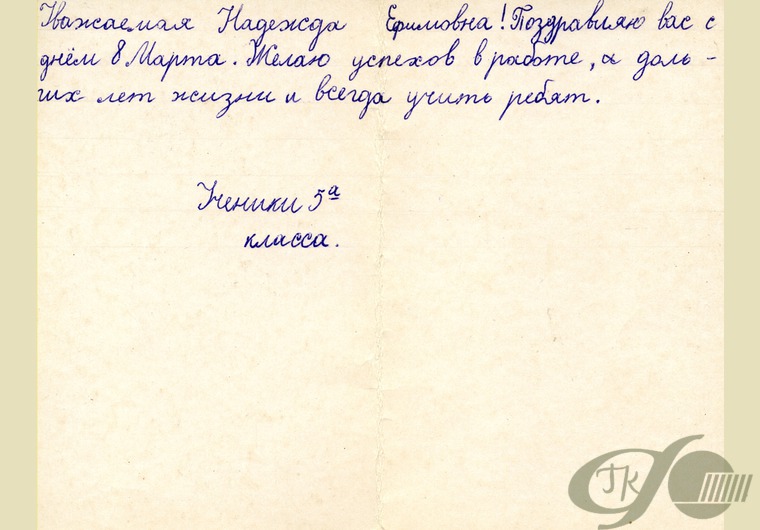 Уважаемая Надежда Ефимовна! Поздравляю вас с
днём 8 Марта. Желаю успехов в работе, а доль-
гих лет жизни и всегда учить ребят.
Ученики 5а
класса.
ГК